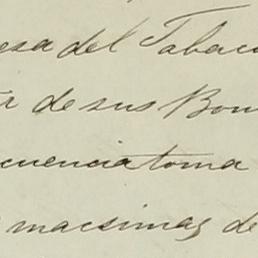 esa del Tabaco
r de sus Bon
cuencia toma
macsimas de